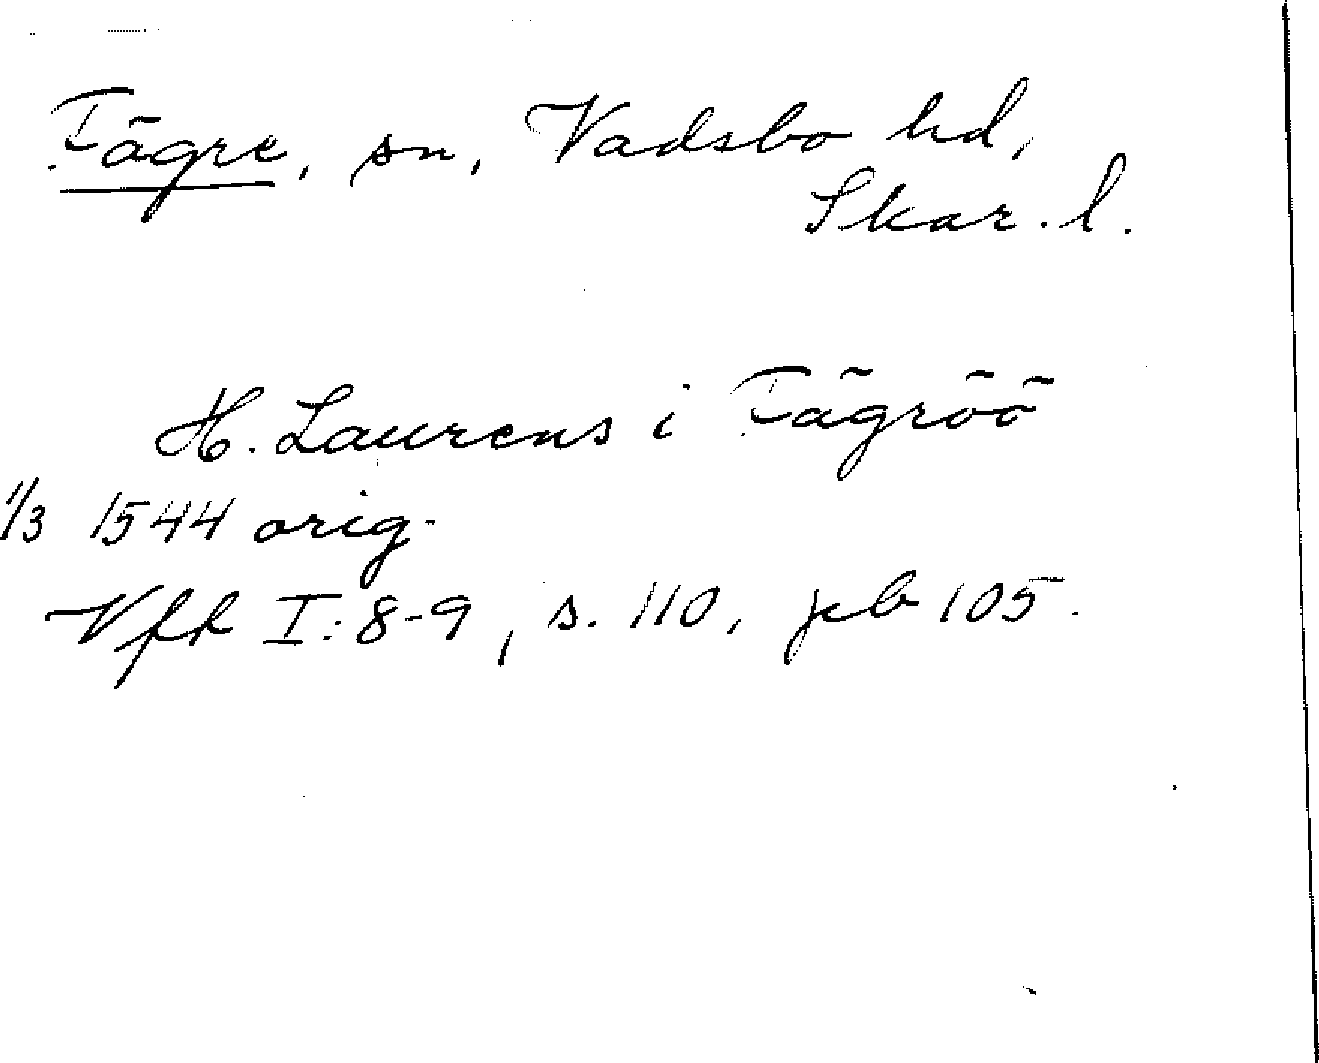 Fägre, sn, Vadsbo hd,
Skar. l.
H. Laurens i Fägröö
1/3 1544 orig.
Vfh I:8-9, s. 110, jb 105.